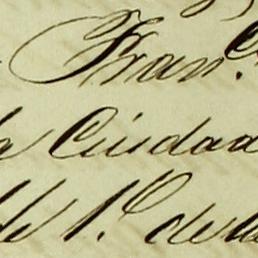 Fran.co
la Ciudad
de 1.º de